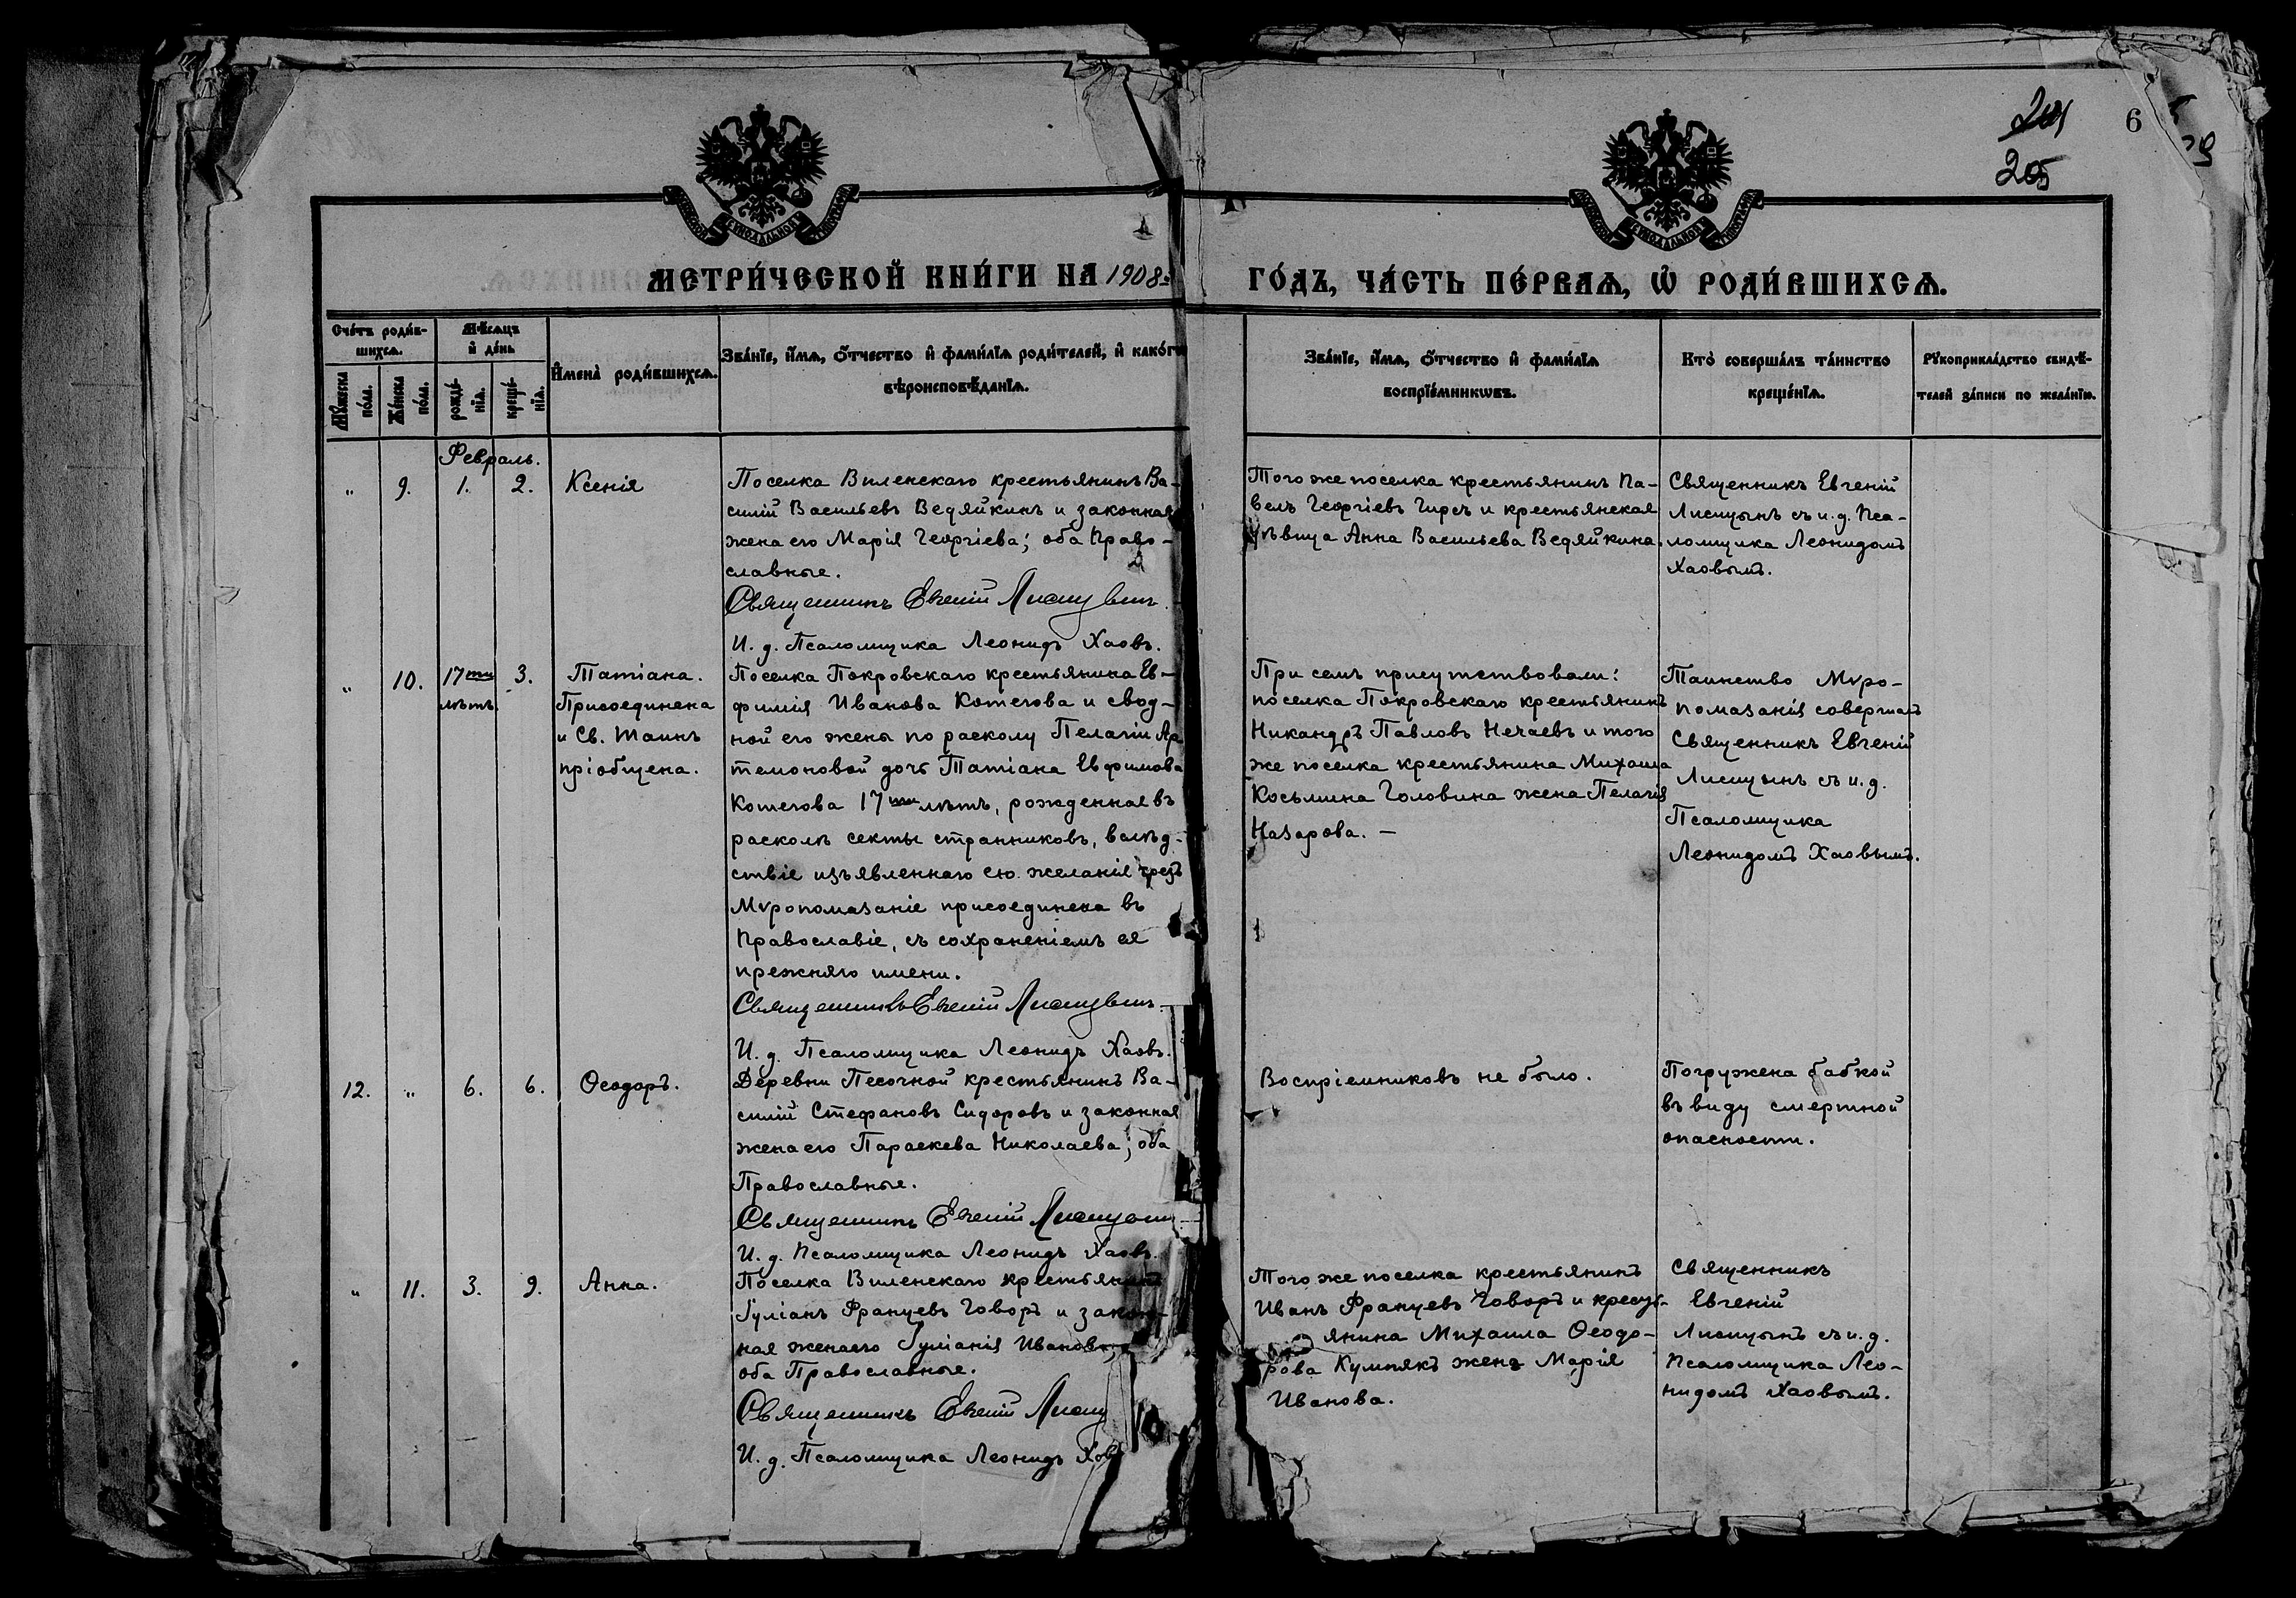 6
205
МЕТРИ́ЧЕСКОЙ КНИ́ГИ НА 1908
ГО́ДЪ, ЧА́СТЬ ПЕ́РВАѦ, Ѽ РОДИ́ВШИХСѦ.
Сче́тъ роди́в-
шихсѧ.
Му́жеска по́ла.
Же́нска по́ла.
Мѣ́сѧцъ
и҆ де́нь
рожде́-
нїѧ.
креще́-
нїѧ.
И҆мена̀ роди́вшихсѧ.
Зва́нїе, и҆́мѧ, ѻ҆́тчество и҆ фами́лїѧ роди́телей, и҆ како́гѡ
вѣроисповѣ́данїѧ.
Зва́нїе, и҆́мѧ, ѻ҆́тчество и҆ фами́лїѧ
воспрїе́мникѡвъ.
Кто̀ соверша́лъ та́инство
креще́нїѧ.
Рꙋкоприкла́дство свидѣ́-
телей за́писи по жела́нїю.
Февраль.
„ 9. 1. 2. Ксенія
Поселка Виленскаго крестьянинъ Ва-
силій Васильевъ Ведяйкинъ и законная
жена его Марія Георгіева; оба Право-
славные.
Священникъ Евгеній Лисицынъ.
И. д. Псаломщика Леонидъ Хаовъ.
Того же поселка крестьянинъ Па-
велъ Георгіевъ Гирсъ и крестьянская
дѣвица Анна Васильева Ведяйкина.
Священникъ Евгеній
Лисицынъ съ и. д. Пса-
ломщика Леонидомъ
Хаовымъ.
„ 10. 17ти 3.
лѣтъ
Татіана.
Присоединена
и Св. Таинъ
пріобщена.
Поселка Покровскаго крестьянина Ев-
фимія Иванова Котегова и свод-
ной его жены по расколу Пелагіи Ар
темоновой дочь Татіана Евфимова
Котегова 17ти лѣтъ, рожденная въ
расколѣ секты странниковъ, вслѣд-
ствіе изъявленнаго ею желанія чрезъ
Мѵропомазаніе присоединена въ
Православіе, съ сохраненіемъ ея
прежняго имени.
Священникъ Евгеній Лисицынъ
И. д. Псаломщика Леонидъ Хаовъ.
При семъ присутствовали:
поселка Покровскаго крестьянинъ
Никандръ Павловъ Нечаевъ и того
же поселка крестьянина Михаила
Косьмина Головина жена Пелагія
Назарова. —
Таинство Мѵро-
помазанія совершалъ
Священникъ Евгеній
Лисицынъ съ и. д.
Псаломщика
Леонидомъ Хаовымъ.
12. „ 6. 6. Ѳеодоръ.
Деревни Песочной крестьянинъ Ва-
силій Стефановъ Сидоровъ и законная
жена его Параскева Николаева; оба
Православные.
Священникъ Евгеній Лисицынъ
И. д. Псаломщика Леонидъ Хаовъ.
Воспріемниковъ не было.
Погружена бабкой
въ виду смертной
опасности.
„ 11. 3. 9. Анна.
Поселка Виленскаго крестьянинъ
Іуліанъ Францевъ Говоръ и закон-
ная жена его Іуліанія Иванова,
оба Православные.
Священникъ Евгеній Лисиц
И. д. Псаломщика Леонидъ Хов
Того же поселка крестьянинъ
Иванъ Францевъ Говоръ и кресть-
янина Михаила Ѳеодо-
рова Кумпякъ жена Марія
Иванова.
Священникъ
Евгеній
Лисицынъ съ и. д.
Псаломщика Лео-
нидомъ Хаовымъ.